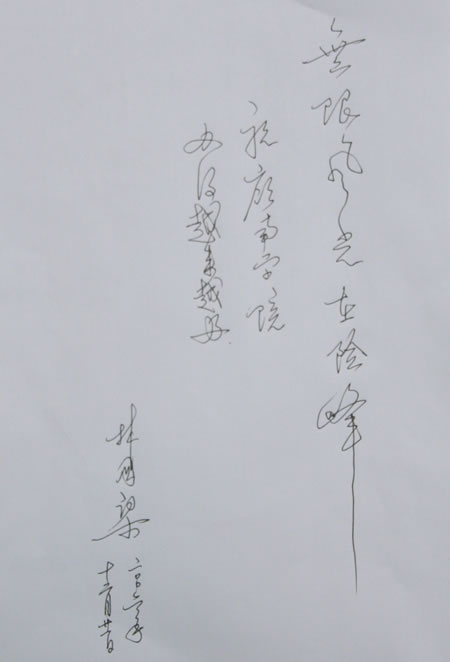 無限风光在险峰
祝南学院
办得越来越好
林国梁
二〇〇六年
十二月廿日